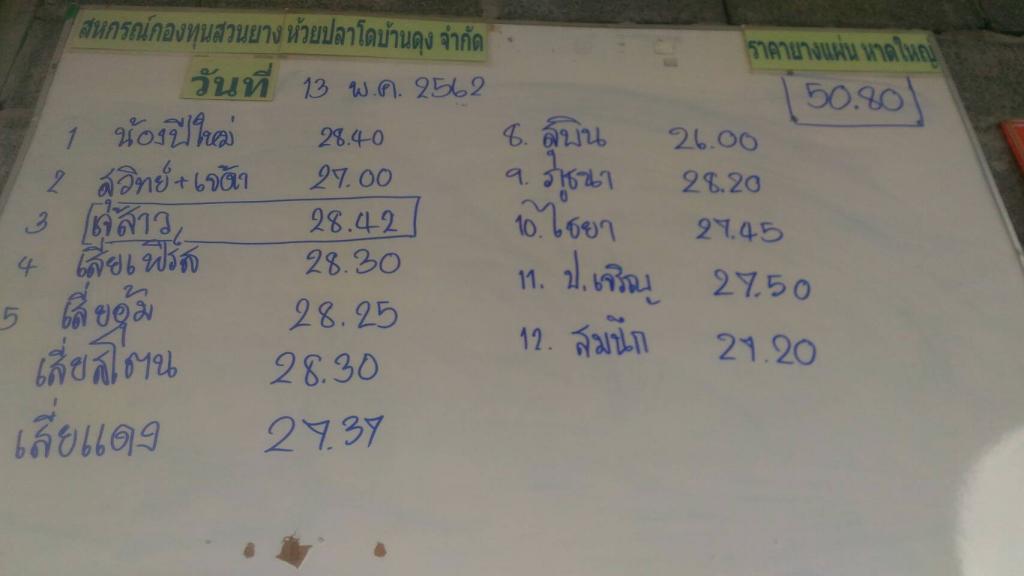 สหกรณ์กองทุนสวนยาง ห้วยปลาโดบ้านดุง จำกัด
ราคายางแผ่น หาดใหญ่
วันที่ 13 พ.ค. 2562
50.80
1 น้องปีใหม่ 28.40
2 สุวิทย์+เจ๊ดา 27.00
3 เจ๊สาว 28.42
4 เสี่ยเฟิร์ส 28.30
5 เสี่ยอุ้ม 28.25
เสี่ยสโตน 28.30
เสี่ยแดง 27.37
8. สุบิน 26.00
9. ภูชนา 28.20
10. ไชยา 27.45
11. ป.เจริญ 27.50
12. สมนึก 27.20